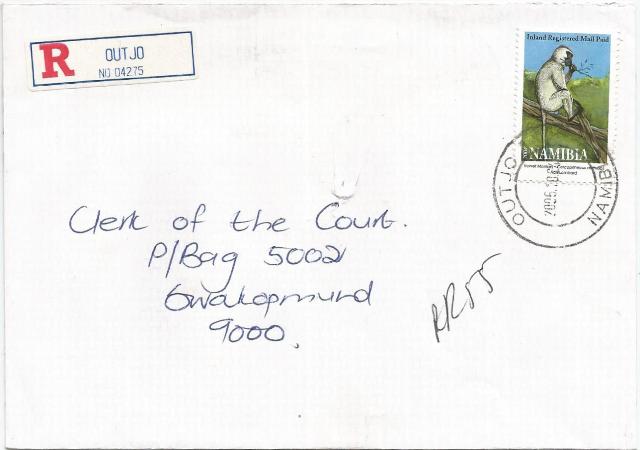 R
OUTJO
NO 04275
Inland Registered Mail Paid
NAMIBIA
Vervet Monkey - Cercopithecus
OUTJO
NAMIB
Clerk of the Court.
P/Bag 5002
Swakopmund
9000.
RR55